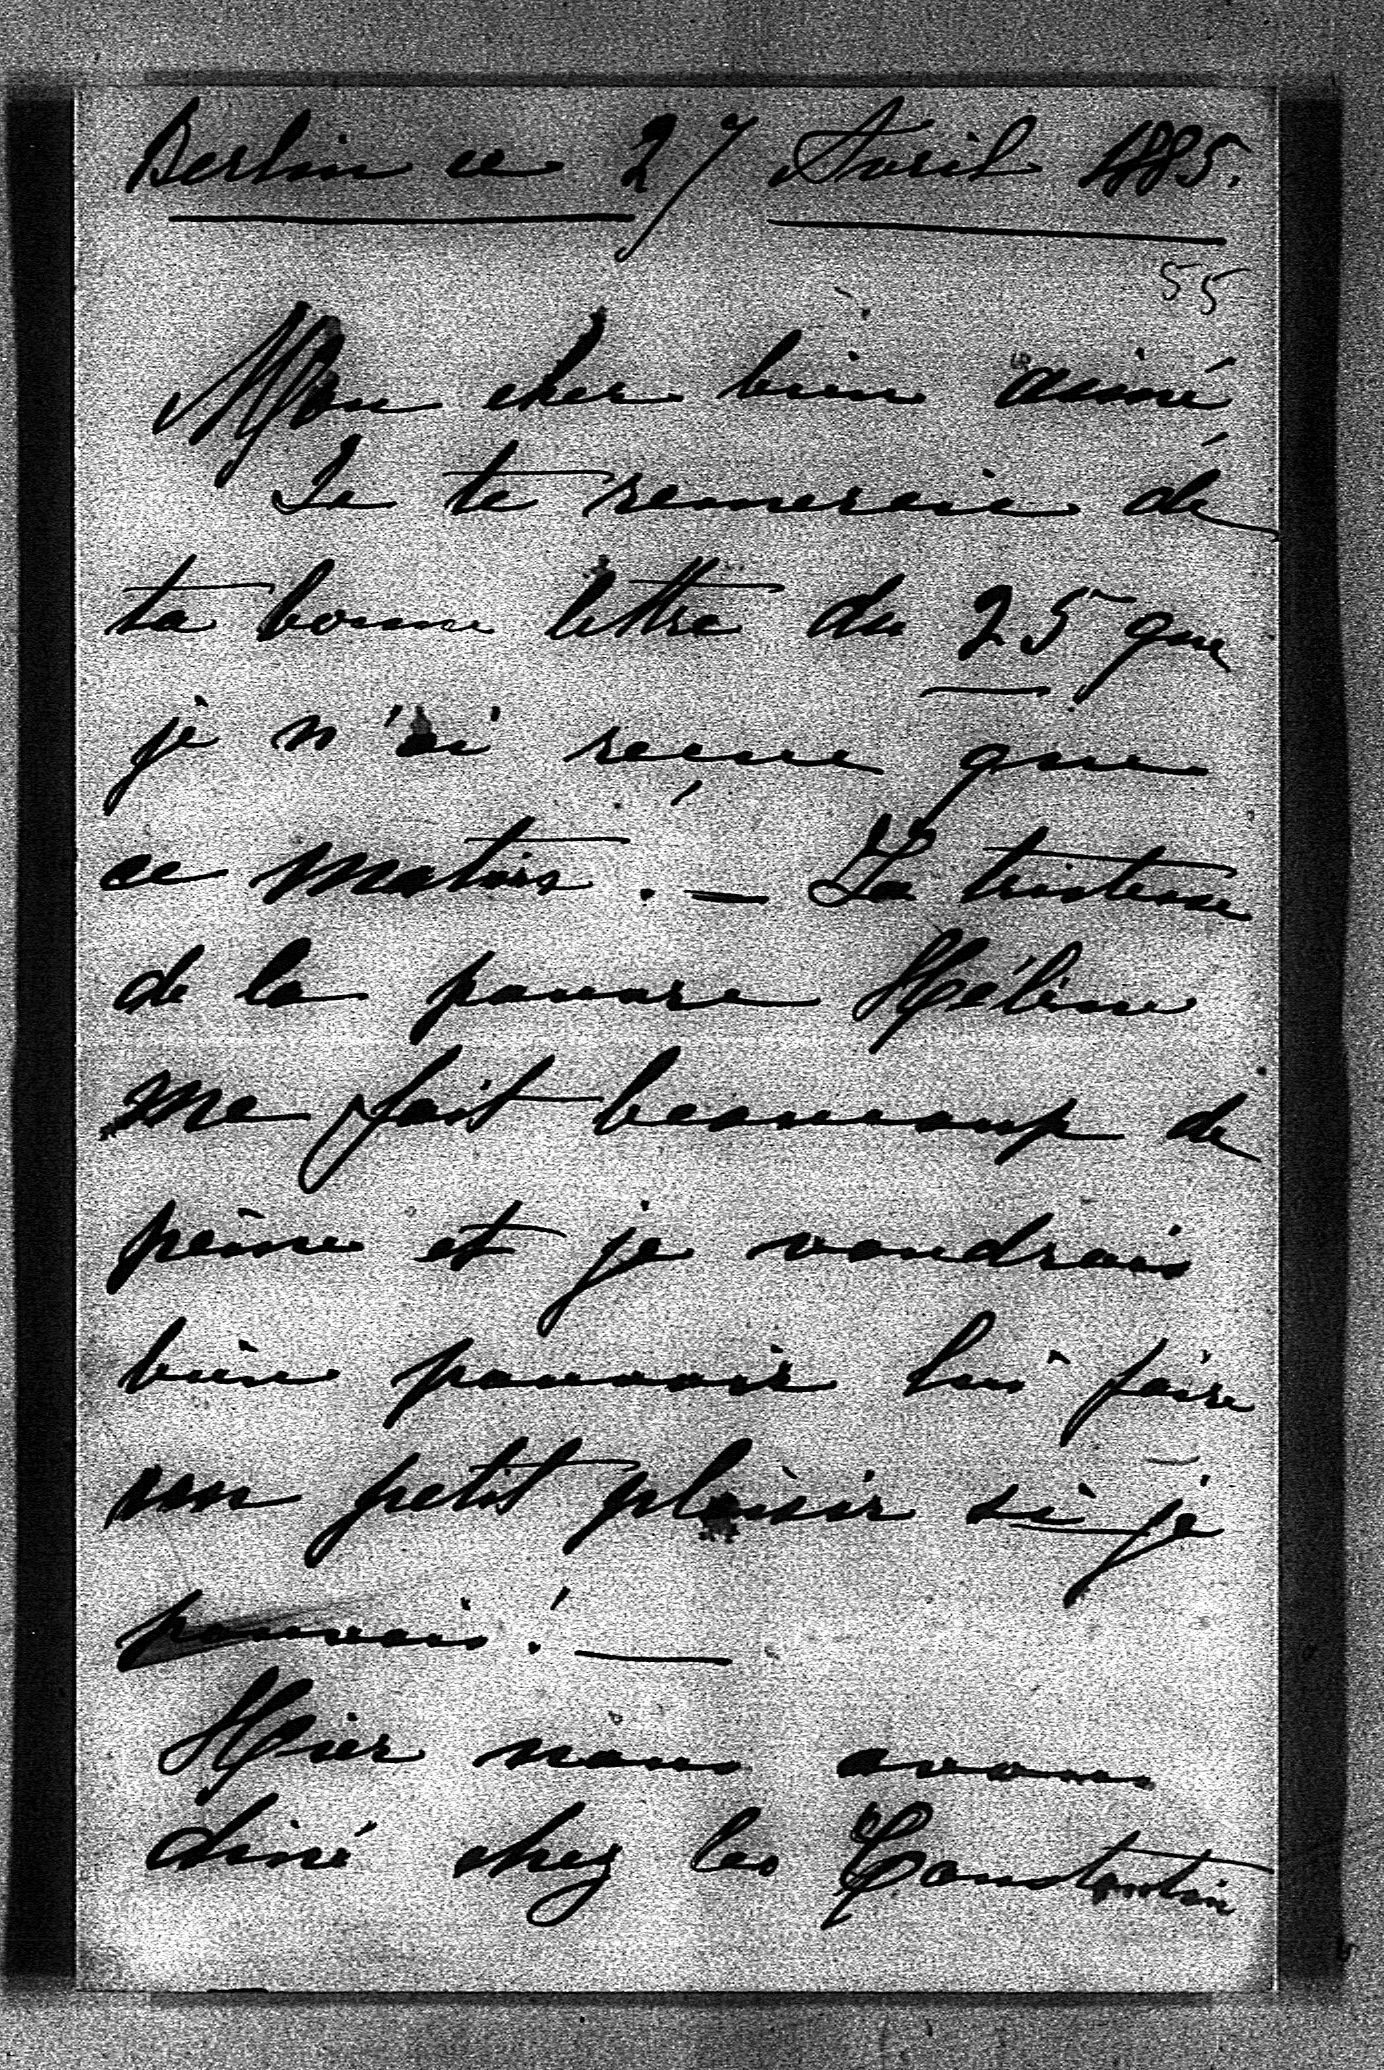 Berlin ce 27 Avril 1885.
55
Mon cher bien aimé
Je te remercie de
ta bonne lettre du 25 que
je n'ai reçue que
ce matin. — La tristesse
de la pauvre Hélène
me fait beaucoup de
peine et je voudrais
bien pouvoir lui faire
un petit plaisir si je
pouvais! —
Hier nous avons
diné chez les Constantin